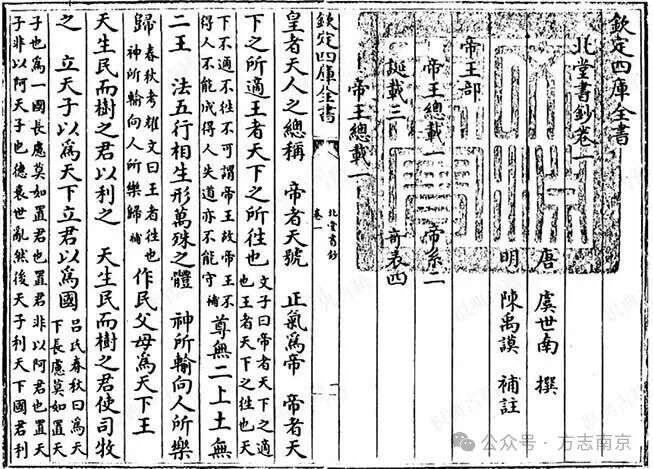 欽定四庫全書
北堂書鈔卷一
唐 虞世南 撰
明 陳禹謨 補註
帝王部
帝王總載一 帝系二
誕載三 奇表四
帝王總載一
欽定四庫全書
北堂書鈔
卷一
一
皇者天人之總稱 帝者天號 正氣爲帝 帝者天
下之所適王者天下之所徃也
文子曰帝者天下之適
也王者天下之徃也天
下不適不徃不可謂帝王故帝王不
得人不能成得人失道亦不能守補
尊無二上土無
二王 法五行相生形萬殊之體 神所輸向人所樂
歸
春秋考耀文曰王者徃也
神所輸向人所樂歸補
作民父母爲天下王
天生民而樹之君以利之 天生民而樹之君使司牧
之 立天子以爲天下立君以爲國
呂氏春秋曰爲天
下長慮莫如置天
子也爲一國長慮莫如置君也置君非以阿君也置天
子非以阿天子也德衰世亂然後天子利天下國君利
公众号·方志南京